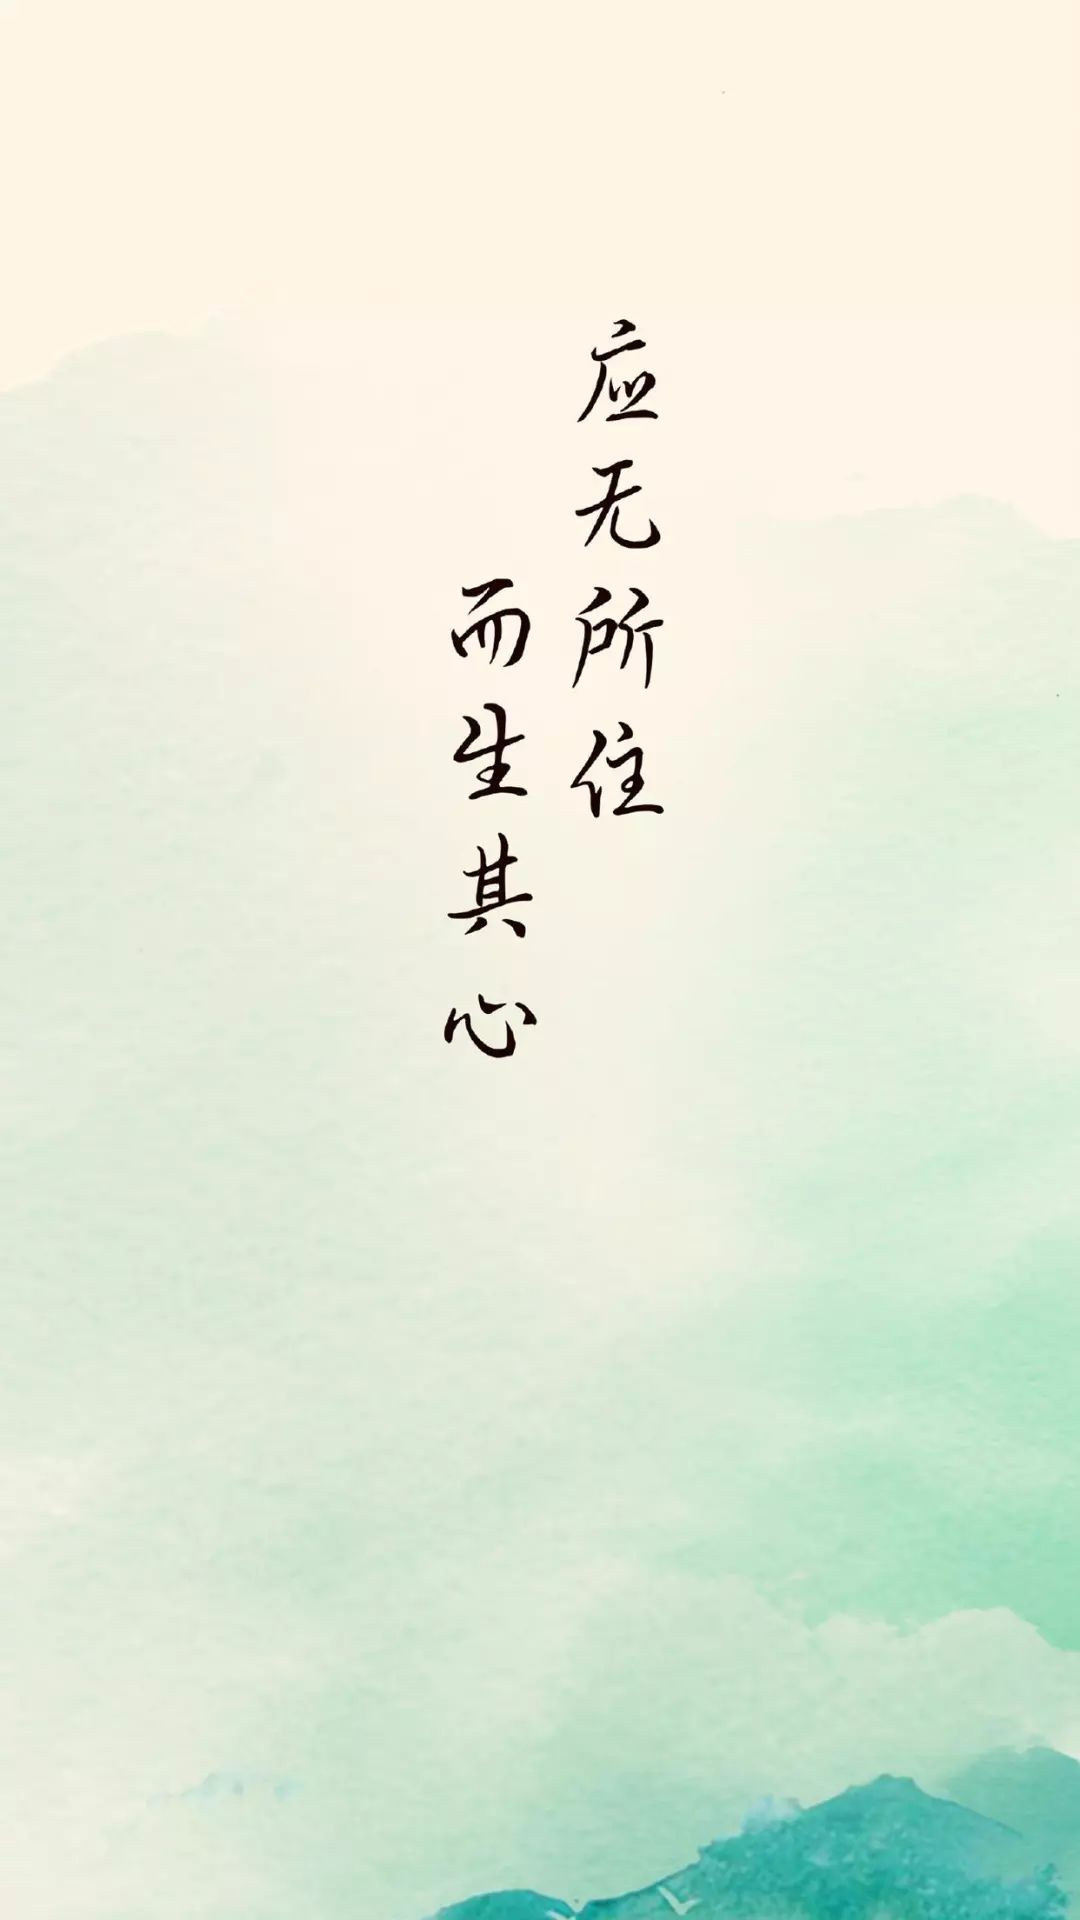 应无所住
而生其心